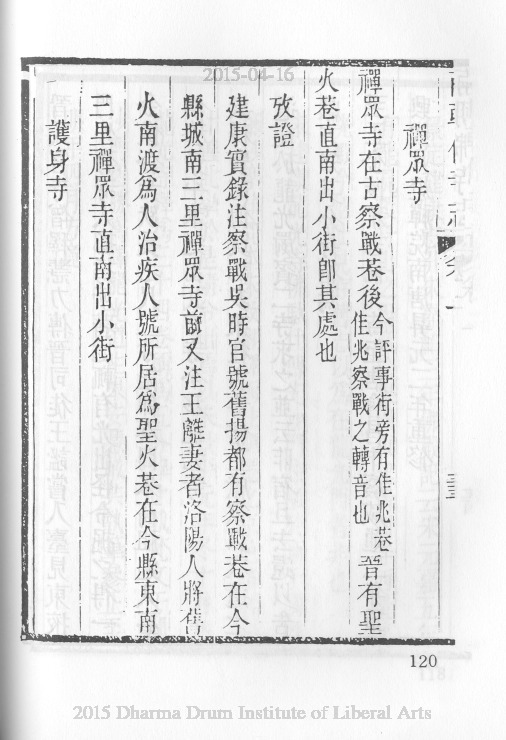 2015-04-16
禪眾寺
禪眾寺在古察戰巷後今評事街旁有佳兆巷佳兆察戰之轉音也晉有聖
火巷直南出小街卽其處也
攷證
建康實錄注察戰吳時官號舊揚都有察戰巷在今
縣城南三里禪眾寺前又注王離妻者洛陽人將舊
火南渡爲人治疾人號所居爲聖火巷在今縣東南
三里禪眾寺直南出小街
護身寺
120
2015 Dharma Drum Institute of Liberal Arts